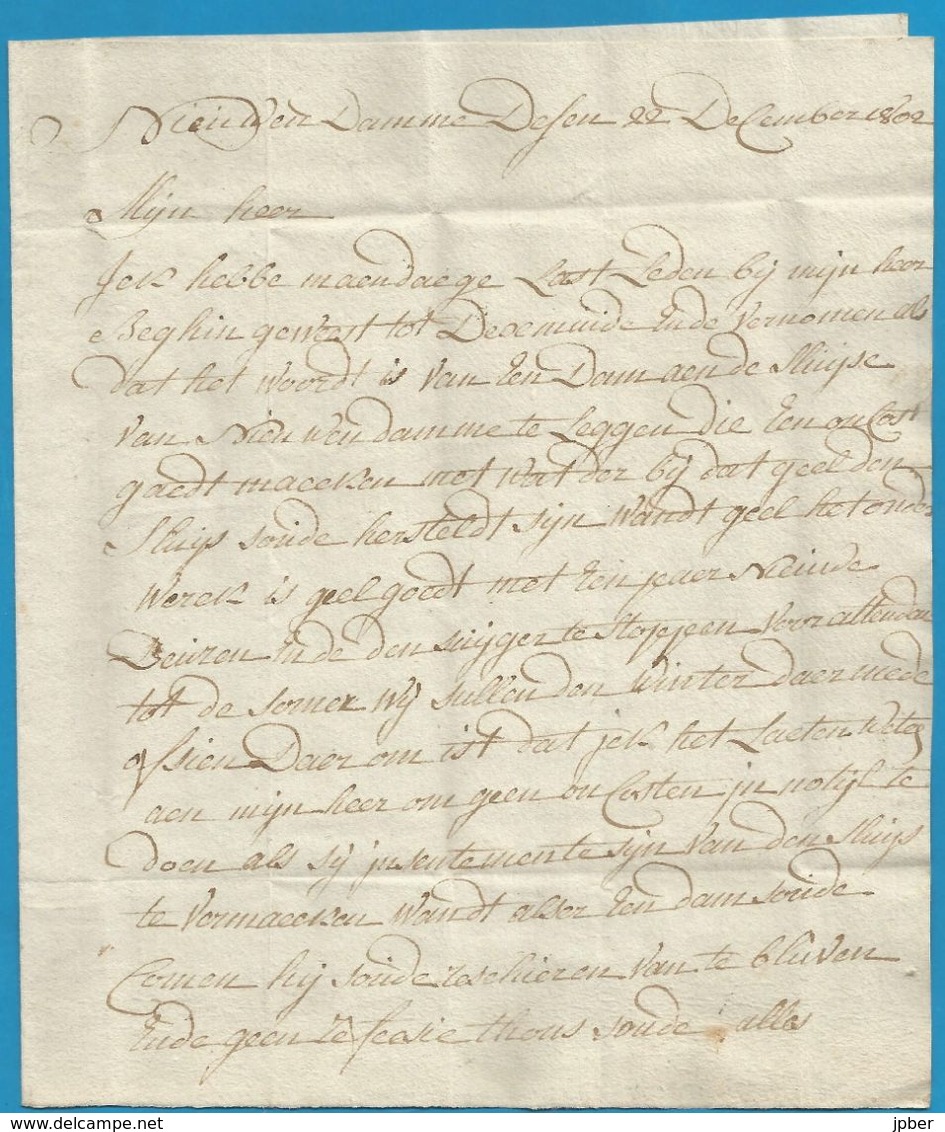 Nieuwen Damme Desen 22 December 1802
Mijn heer
Jck hebbe maendaege Last Leden bij mijn heer
Beghin geweest tot Dexemuide Ende vernomen als
dat het woordt is van Een Dam aen de Sluijse
van Nieuwendamme te Leggen die Een on Cost
gaedt maecken met wat der bij dat geel den
Sluijs soude hersteldt sijn wandt geel het onder
werck is geel goedt met Een paer Nieude
Deuren Ende den suijger te stoppen voor allenden
tot de somer wij sullen den winter daer mede
Daer om ist dat jck het Laeten weten
aen mijn heer om geen on Costen jn notijt te
doen als sij jn sentemente sijn van den Sluijs
te vermaecken wandt alser Een dam soude
Comen hij soude van te bliven
Ende geen thous soude alles
jpber